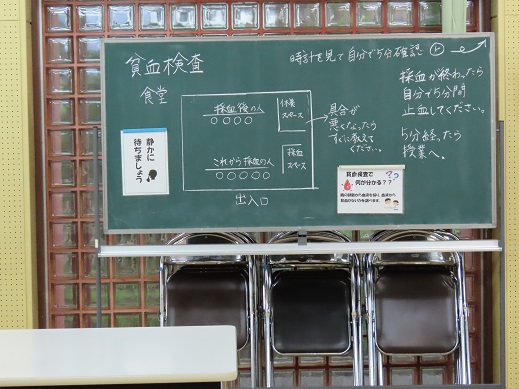 貧血検査
時計を見て自分で5分確認
食堂
採血後の人
休養
スペース
これから採血の人
採血
スペース
出入口
具合が
悪くなったら
すぐに教えて
ください。
採血が終わったら
自分で5分間
止血してください。
5分経ったら
授業へ。
静かに
待ちましょう
貧血検査で
何が分かる??